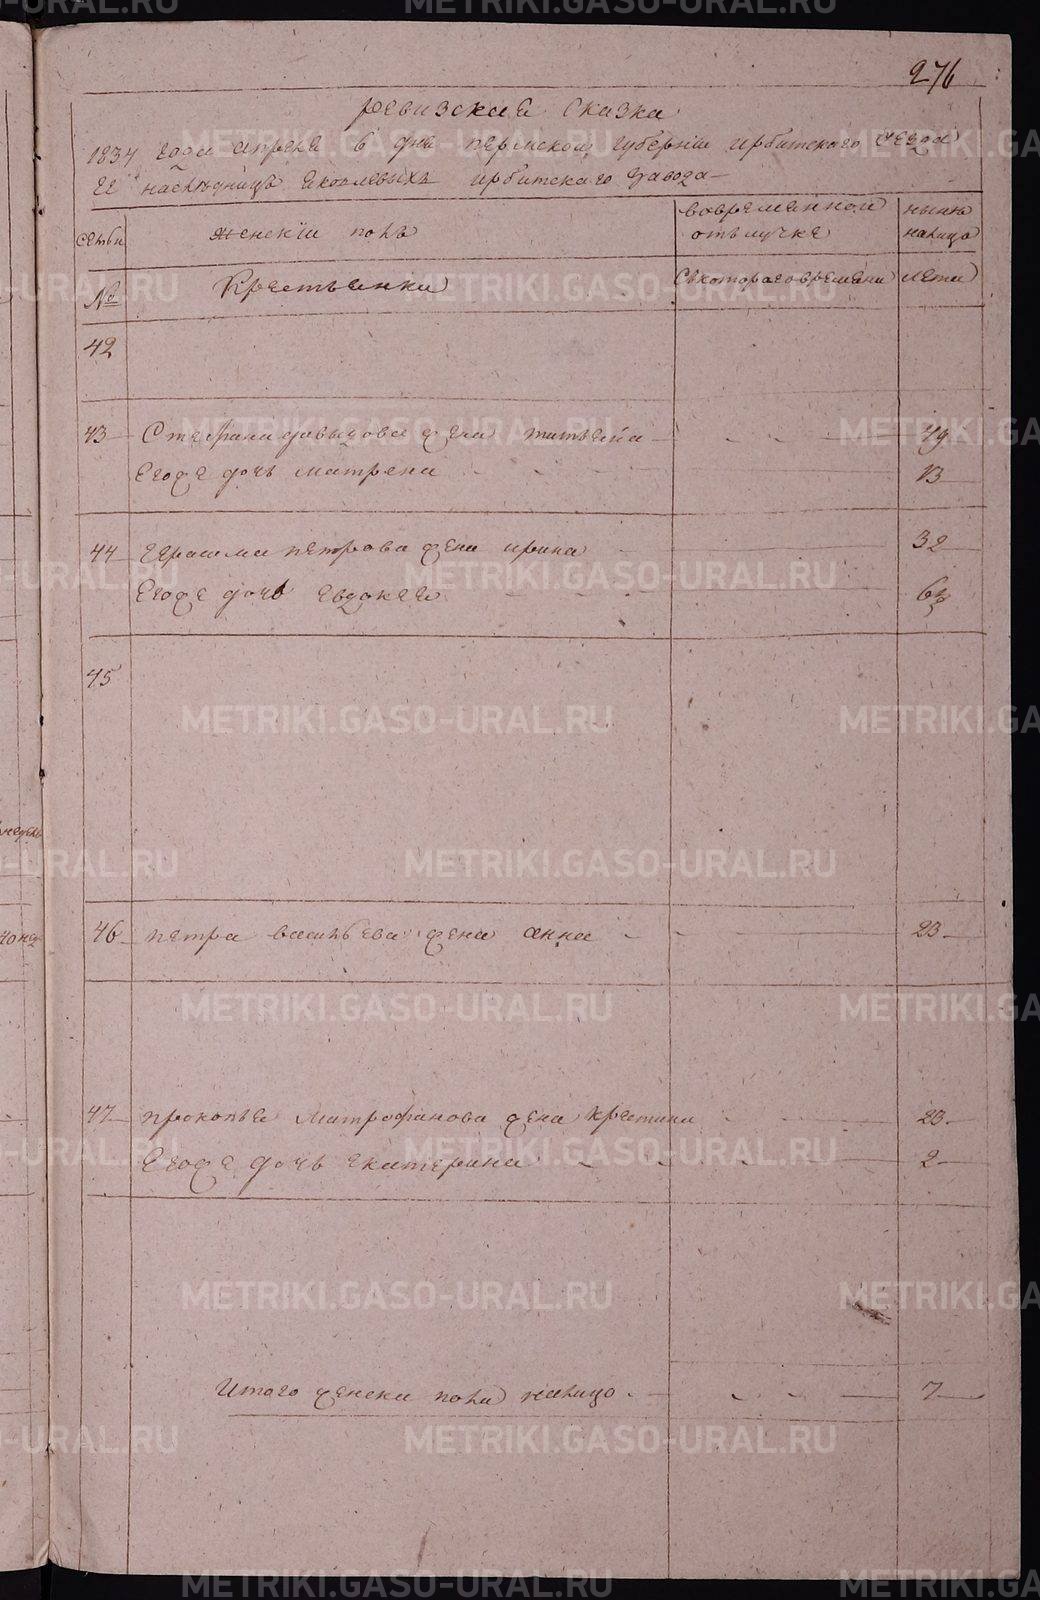 276
ревизская сказка
1834 года апреля в дня пермской губернии ирбитского уезда
наследниц яковлевых ирбитского завода
семьи
женский полъ
вовременной
отълучке
ныне
налицо
№
Крестьянки
Скотораговремяни
лета
42
43 Стефана давыдова жена татьяна 49
Егоже дочь матрена 13
44 герасима петрова жена ирина 32
Егоже дочь евдокея 6
45
46 петра васильева жена анна 23
47 прокопья Митрофанова жена Крестина 23
Егоже дочь екатерина 2
Итого женска пола налицо 7
METRIKI.GASO-URAL.RU